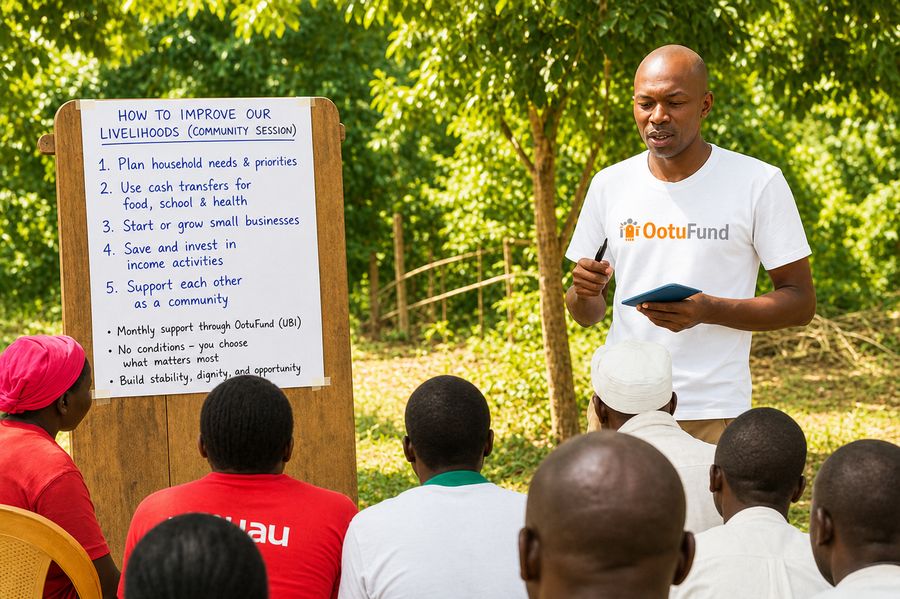 HOW TO IMPROVE OUR
LIVELIHOODS (COMMUNITY SESSION)
1. Plan household needs & priorities
2. Use cash transfers for
food, school & health
3. Start or grow small businesses
4. Save and invest in
income activities
5. Support each other
as a community
• Monthly support through OotuFund (UBI)
• No conditions – you choose
what matters most
• Build stability, dignity, and opportunity
OotuFund